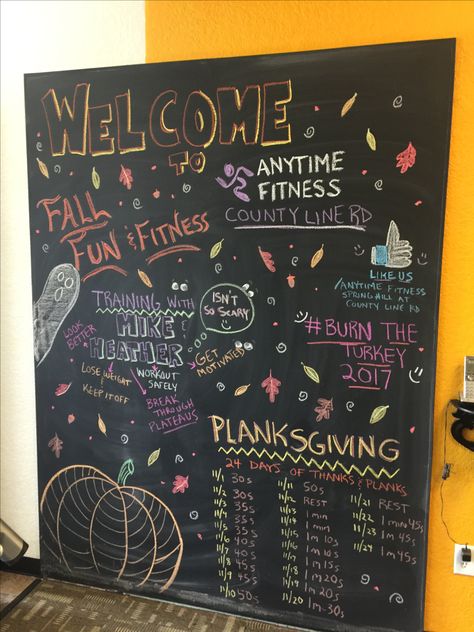 WELCOME
TO
ANYTIME
FITNESS
COUNTY LINE RD
FALL
FUN & FITNESS
LIKE US
/ANYTIME FITNESS
SPRING HILL AT
COUNTY LINE RD
TRAINING WITH
MIKE
HEATHER
ISN'T
SO SCARY
LOOK
BETTER
LOSE WEIGHT
KEEP IT OFF
WORKOUT
SAFELY
BREAK
THROUGH
PLATEAUS
GET
MOTIVATED
#BURN THE
TURKEY
2017
PLANKSGIVING
24 DAYS OF THANKS & PLANKS
11/1 30s
11/2 30s
11/3 35s
11/4 35s
11/5 35s
11/6 40s
11/7 40s
11/8 45s
11/9 45s
11/10 50s
11/11 50s
11/12 REST
11/13 1 min
11/14 1 min
11/15 1m10s
11/16 1m10s
11/17 1m15s
11/18 1m20s
11/19 1m20s
11/20 1m-30s
11/21 REST
11/22 1 min 45s
11/23 1m45s
11/24 1m45s